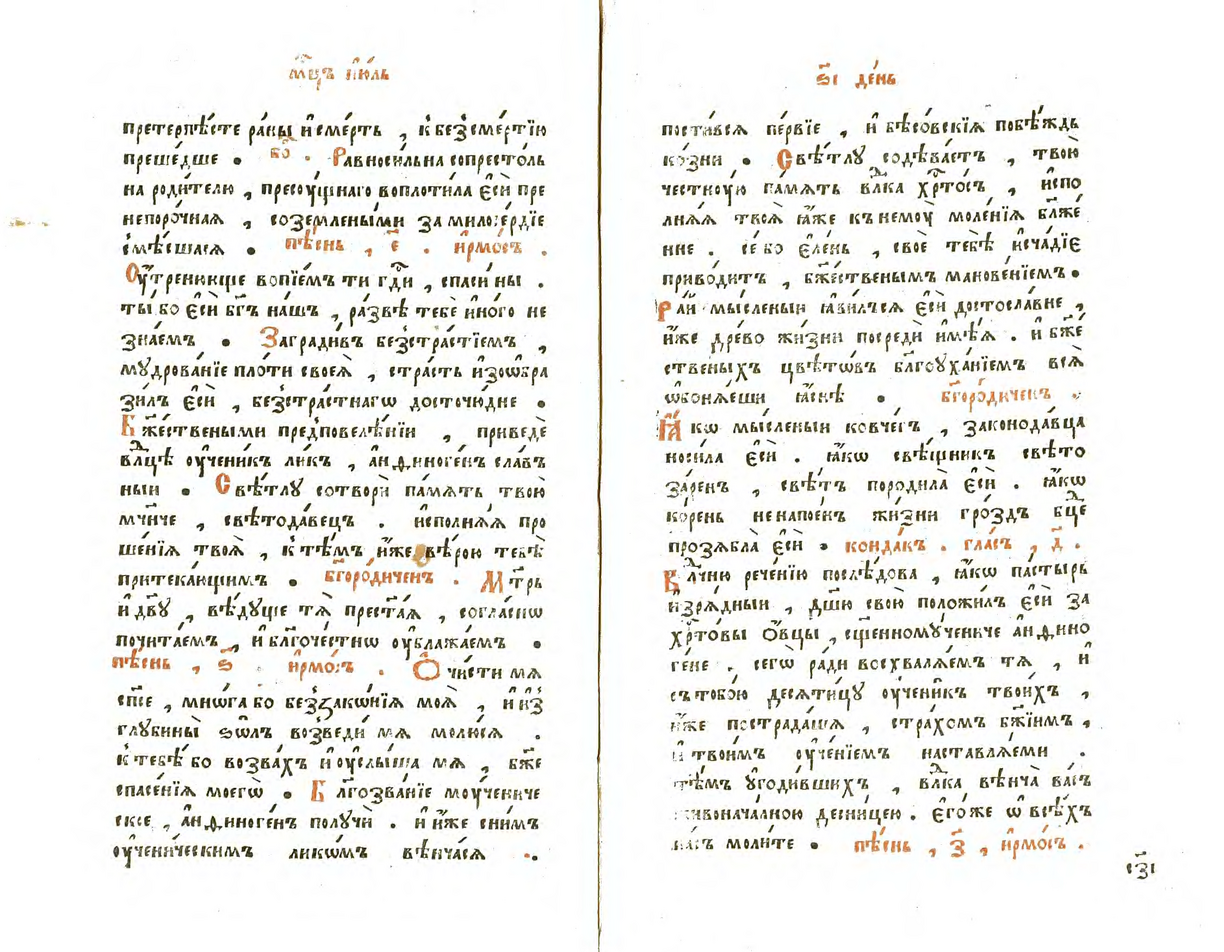 мⷭ҇цъ і҆ю́ль
претерпѣ́сте ра́ны и҆ сме́рть , к̾ безсме́ртїю
преше́дше . бо҃ . Равноси́льна сопресто́ль
на роди́телю , пресꙋ́щнаго воплоти́ла є҆сѝ пре
непоро́чная , соземлены́ми за милосе́рдїе
смѣ́сшася . пѣ́снь , є҃ . і҆рмо́съ .
Оу҆́тренююще вопїе́мъ ти гдⷭ҇и , спаси́ ны .
ты́ бо є҆сѝ бг҃ъ на́шъ , ра́звѣ тебѐ и҆но́го не
зна́емъ . Загради́въ безстра́стїемъ ,
мꙋдрова́нїе пло́ти своеѧ̀ , стра́сть и҆зѡбра
зи́лъ є҆сѝ , безстра́стнагѡ досточю́дне .
Бж҃е́ствеными предповелѣ́нїи , приведѐ
влⷣцѣ оу҆чени́къ ли́къ , а҆нѳиноге́нъ сла́въ
ныи . Свѣ́тлꙋ сотворѝ па́мѧть твою̀
мч҃нче , свѣтода́вецъ . и҆сполнѧ́ѧ про
ше́нїѧ твоѧ̀ , к̾ тѣ́мъ и҆́же вѣ́рою тебѣ̀
притека́ющимъ . бг҃оро́диченъ . Мт҃рь
и҆ дв҃ꙋ , вѣ́дꙋще тѧ̀ прест҃а́ѧ , согла́снѡ
почита́емъ , и҆ бл҃гоче́стнѡ оу҆блажа́емъ .
пѣ́снь , ѕ҃ . і҆рмо́съ . Ѻ҆чи́сти мѧ
сп҃се , мнѡ́га бо беззакѡ́нїѧ моѧ̀ , и҆ и҆з̾
глꙋбины̀ ѕѡ́лъ возведи́ мѧ молю́сѧ .
к̾ тебѣ́ бо возва́хъ и҆ оу҆слы́ша мѧ , бж҃е
спасе́нїѧ моегѡ̀ . Бл҃гозва́нїе моу́чениче
ское , а҆нѳиноге́нъ полꙋчѝ . и҆ и҆́же сни́мъ
оу҆чени́ческимъ ли́кѡмъ вѣнча́сѧ .
ѕ҃і де́нь
пости́всѧ пе́рвїе , и҆ бѣсо́вскїѧ побѣ́ждь
ко́зни . Свѣ́тлꙋ содѣ́ваетъ , твою̀
честноу́ю па́мѧть влⷣка хрⷭ҇то́съ , и҆спо
лнѧ́ѧ твоѧ̀ ꙗ҆́же къ немоу̀ моле́нїѧ бл҃же
нне . се́ бо є҆ле́нь , своѐ тебѣ̀ и҆сча́дїе
приво́дитъ , бж҃е́ственымъ манове́нїемъ .
Ра́й мы́сленыи ꙗ҆ви́лсѧ є҆сѝ достосла́вне ,
и҆́же дре́во жи́зни посредѝ и҆мѣ́ѧ . и҆ бж҃е
ственыхъ цвѣ́тѡвъ бл҃гоꙋха́нїемъ всѧ̀
ѡ҆боня́еши ꙗ҆́снѣ . бг҃оро́диченъ .
Ꙗ҆́кѡ мы́сленыи ковче́гъ , законода́вца
носи́ла є҆сѝ . ꙗ҆́кѡ свѣ́щникъ свѣто
за́ренъ , свѣ́тъ породи́ла є҆сѝ . ꙗ҆́кѡ
ко́рень ненапое́нъ жи́зни гро́здъ бцⷣе
прозѧ́бла є҆сѝ . конда́къ . гла́съ , д҃ .
Влⷣчню рече́нїю послѣ́дова , ꙗ҆́кѡ па́стырь
и҆зрѧ́дныи , дш҃ю свою̀ положи́лъ є҆сѝ за
хрⷭ҇то́вы ѻ҆́вцы , сщ҃енномꙋ́чениче а҆нѳино
ге́не . сегѡ̀ ра́ди восхвалѧ́емъ тѧ̀ , и҆
съ тобо́ю десѧти́цꙋ оу҆чени́къ твои́хъ ,
и҆́же пострада́шѧ , стра́хомъ бж҃їимъ ,
и҆ твои́мъ оу҆че́нїемъ наставлѧ́еми .
тѣ́мъ ᲂугоди́вшихъ , влⷣка вѣнча̀ ва́съ
живонача́лною десни́цею . є҆го́же ѡ҆ всѣ́хъ
на́съ моли́те . пѣ́снь , з҃ , і҆рмо́съ .
сз҃і